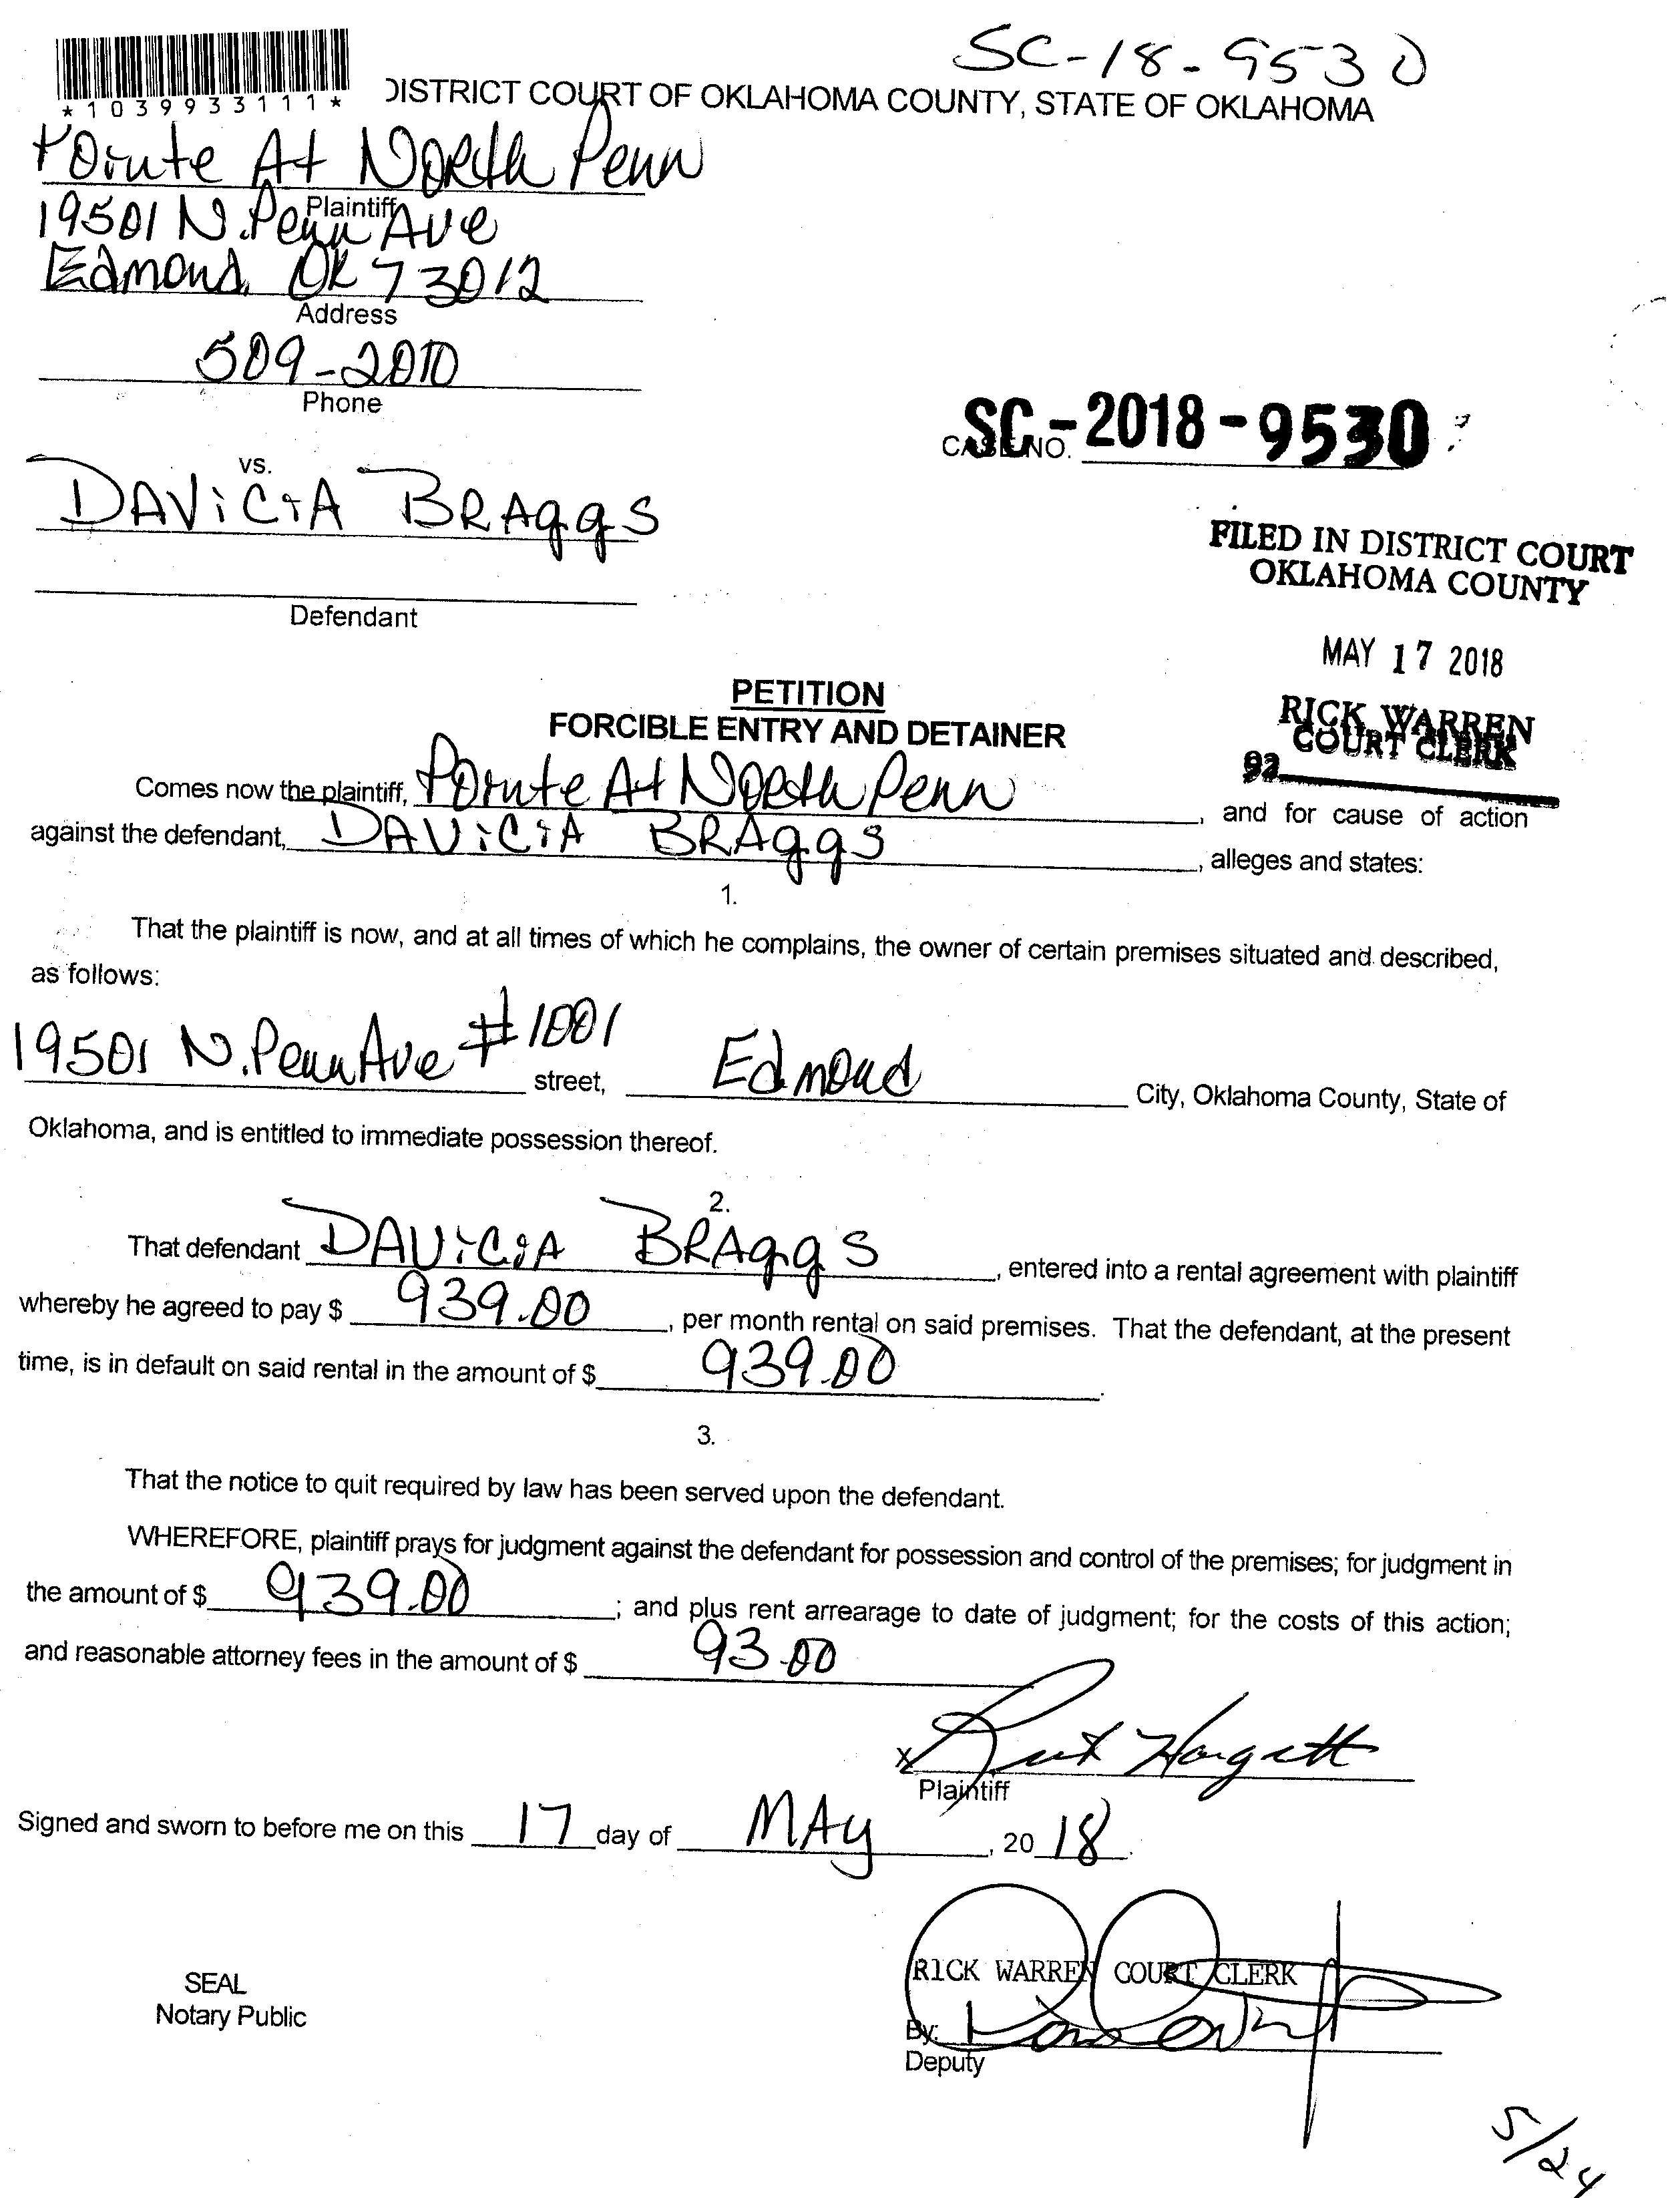 SC-18-9530
*1039933111*
DISTRICT COURT OF OKLAHOMA COUNTY, STATE OF OKLAHOMA
Pointe At North Penn
Plaintiff
19501 N. Penn Ave
Edmond, OK 73012
Address
509-2010
Phone
CASE NO. SC-2018-9530
vs.
DAViCiA BRAggS
Defendant
FILED IN DISTRICT COURT
OKLAHOMA COUNTY
MAY 17 2018
RICK WARREN
COURT CLERK
92
PETITION
FORCIBLE ENTRY AND DETAINER
Comes now the plaintiff, Pointe At North Penn, and for cause of action
against the defendant, DAViCiA BRAggS, alleges and states:
1.
That the plaintiff is now, and at all times of which he complains, the owner of certain premises situated and described,
as follows:
19501 N. Penn Ave #1001 street, Edmond City, Oklahoma County, State of
Oklahoma, and is entitled to immediate possession thereof.
2.
That defendant DAViCiA BRAggS, entered into a rental agreement with plaintiff
whereby he agreed to pay $ 939.00, per month rental on said premises. That the defendant, at the present
time, is in default on said rental in the amount of $ 939.00.
3.
That the notice to quit required by law has been served upon the defendant.
WHEREFORE, plaintiff prays for judgment against the defendant for possession and control of the premises; for judgment in
the amount of $ 939.00; and plus rent arrearage to date of judgment; for the costs of this action;
and reasonable attorney fees in the amount of $ 93.00
x Hargett
Plaintiff
Signed and sworn to before me on this 17 day of MAy, 20 18.
RICK WARREN COURT CLERK
SEAL
Notary Public
By:
Deputy
5/24